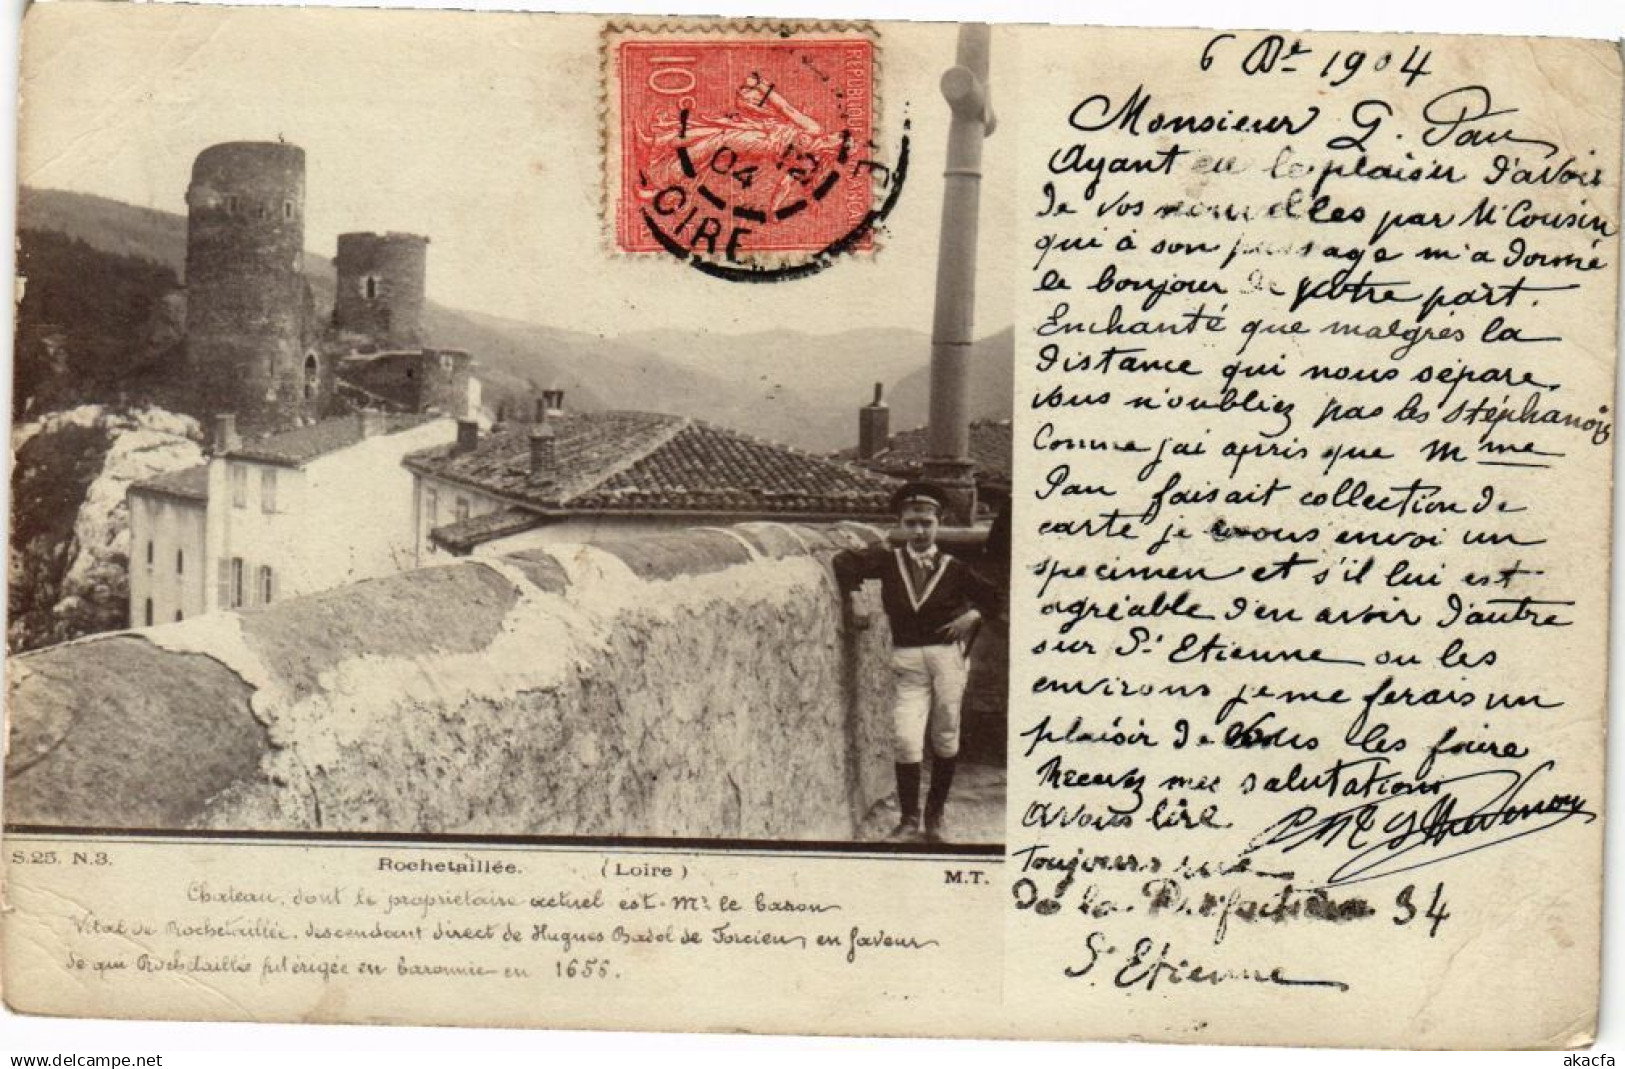 10c
REPUBLIQUE FRANÇAISE
81
12
04
OIRE
6 Dre 1904
Monsieur G. Pau
Ayant eu le plaisir d'avoir
de vos nouvelles par Mr Cousin
qui à son passage m'a donné
le bonjour de votre part.
Enchanté que malgrès la
distance qui nous sépare.
vous n'oubliez pas les Stéphanois
Comme j'ai appris que Mme
Pau faisait collection de
carte je vous envoi un
specimen et s'il lui est
agréable d'en avoir d'autre
sur St Etienne ou les
environs je me ferais un
plaisir de vous les faire
Recevez mes salutations
A vous lire
Toujours rue
de la 34
St Etienne
S.25. N.3.
Rochetaillée. (Loire)
M.T.
Chateau, dont le proprietaire actuel est Mr le baron
Vital de Rochetaillée, descendant direct de Hugues Badol de Forcieu, en faveur
de qui Rochetaillée fut érigée en baronnie en 1655.
akacfa
https://www.delcampe.net